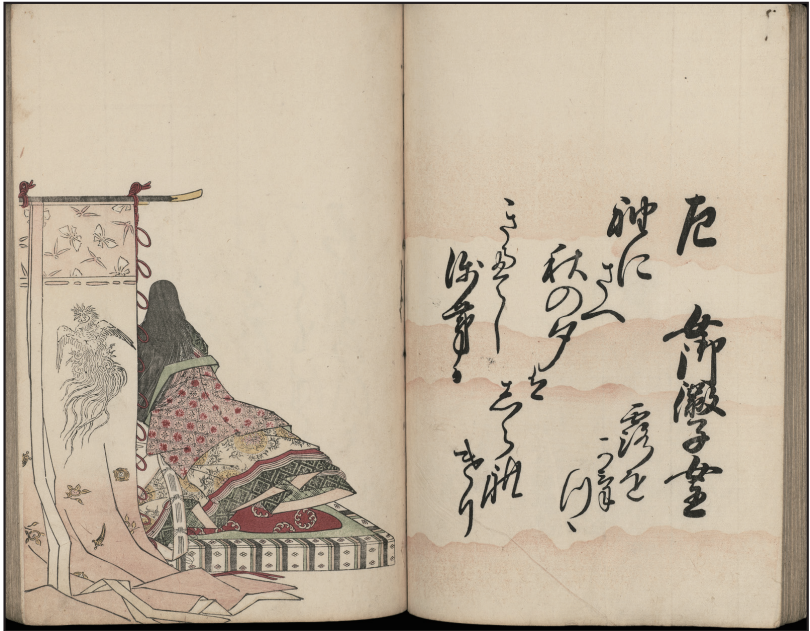 左 女御徽子女王
袖に
さへ
秋の夕
は
しられ
けり
きえし
浅茅か
露を
かけ
つゝ